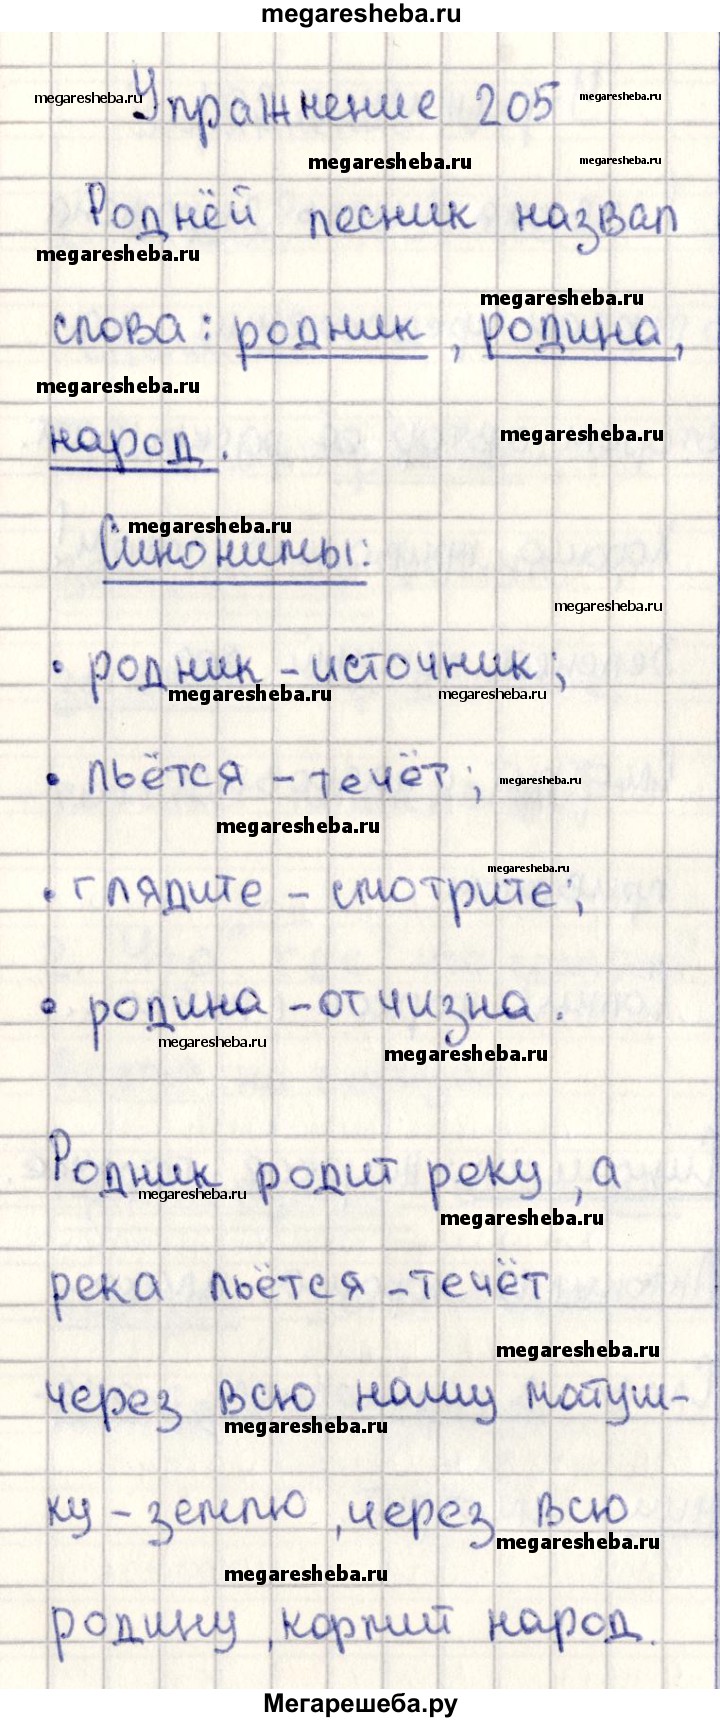 megaresheba.ru
megaresheba.ru
Упражнение 205
megaresheba.ru
megaresheba.ru
megaresheba.ru
Роднёй лесник назвал
megaresheba.ru
megaresheba.ru
слова: родник, родина,
megaresheba.ru
народ.
megaresheba.ru
megaresheba.ru
Синонимы:
megaresheba.ru
• родник – источник;
megaresheba.ru
megaresheba.ru
• льётся – течёт;
megaresheba.ru
megaresheba.ru
megaresheba.ru
• глядите – смотрите;
• родина – отчизна.
megaresheba.ru
megaresheba.ru
Родник родит реку, а
megaresheba.ru
megaresheba.ru
река льётся – течёт
megaresheba.ru
через всю нашу матуш-
megaresheba.ru
ку – землю, через всю
megaresheba.ru
megaresheba.ru
родину, кормит народ.
Мегарешеба.ру